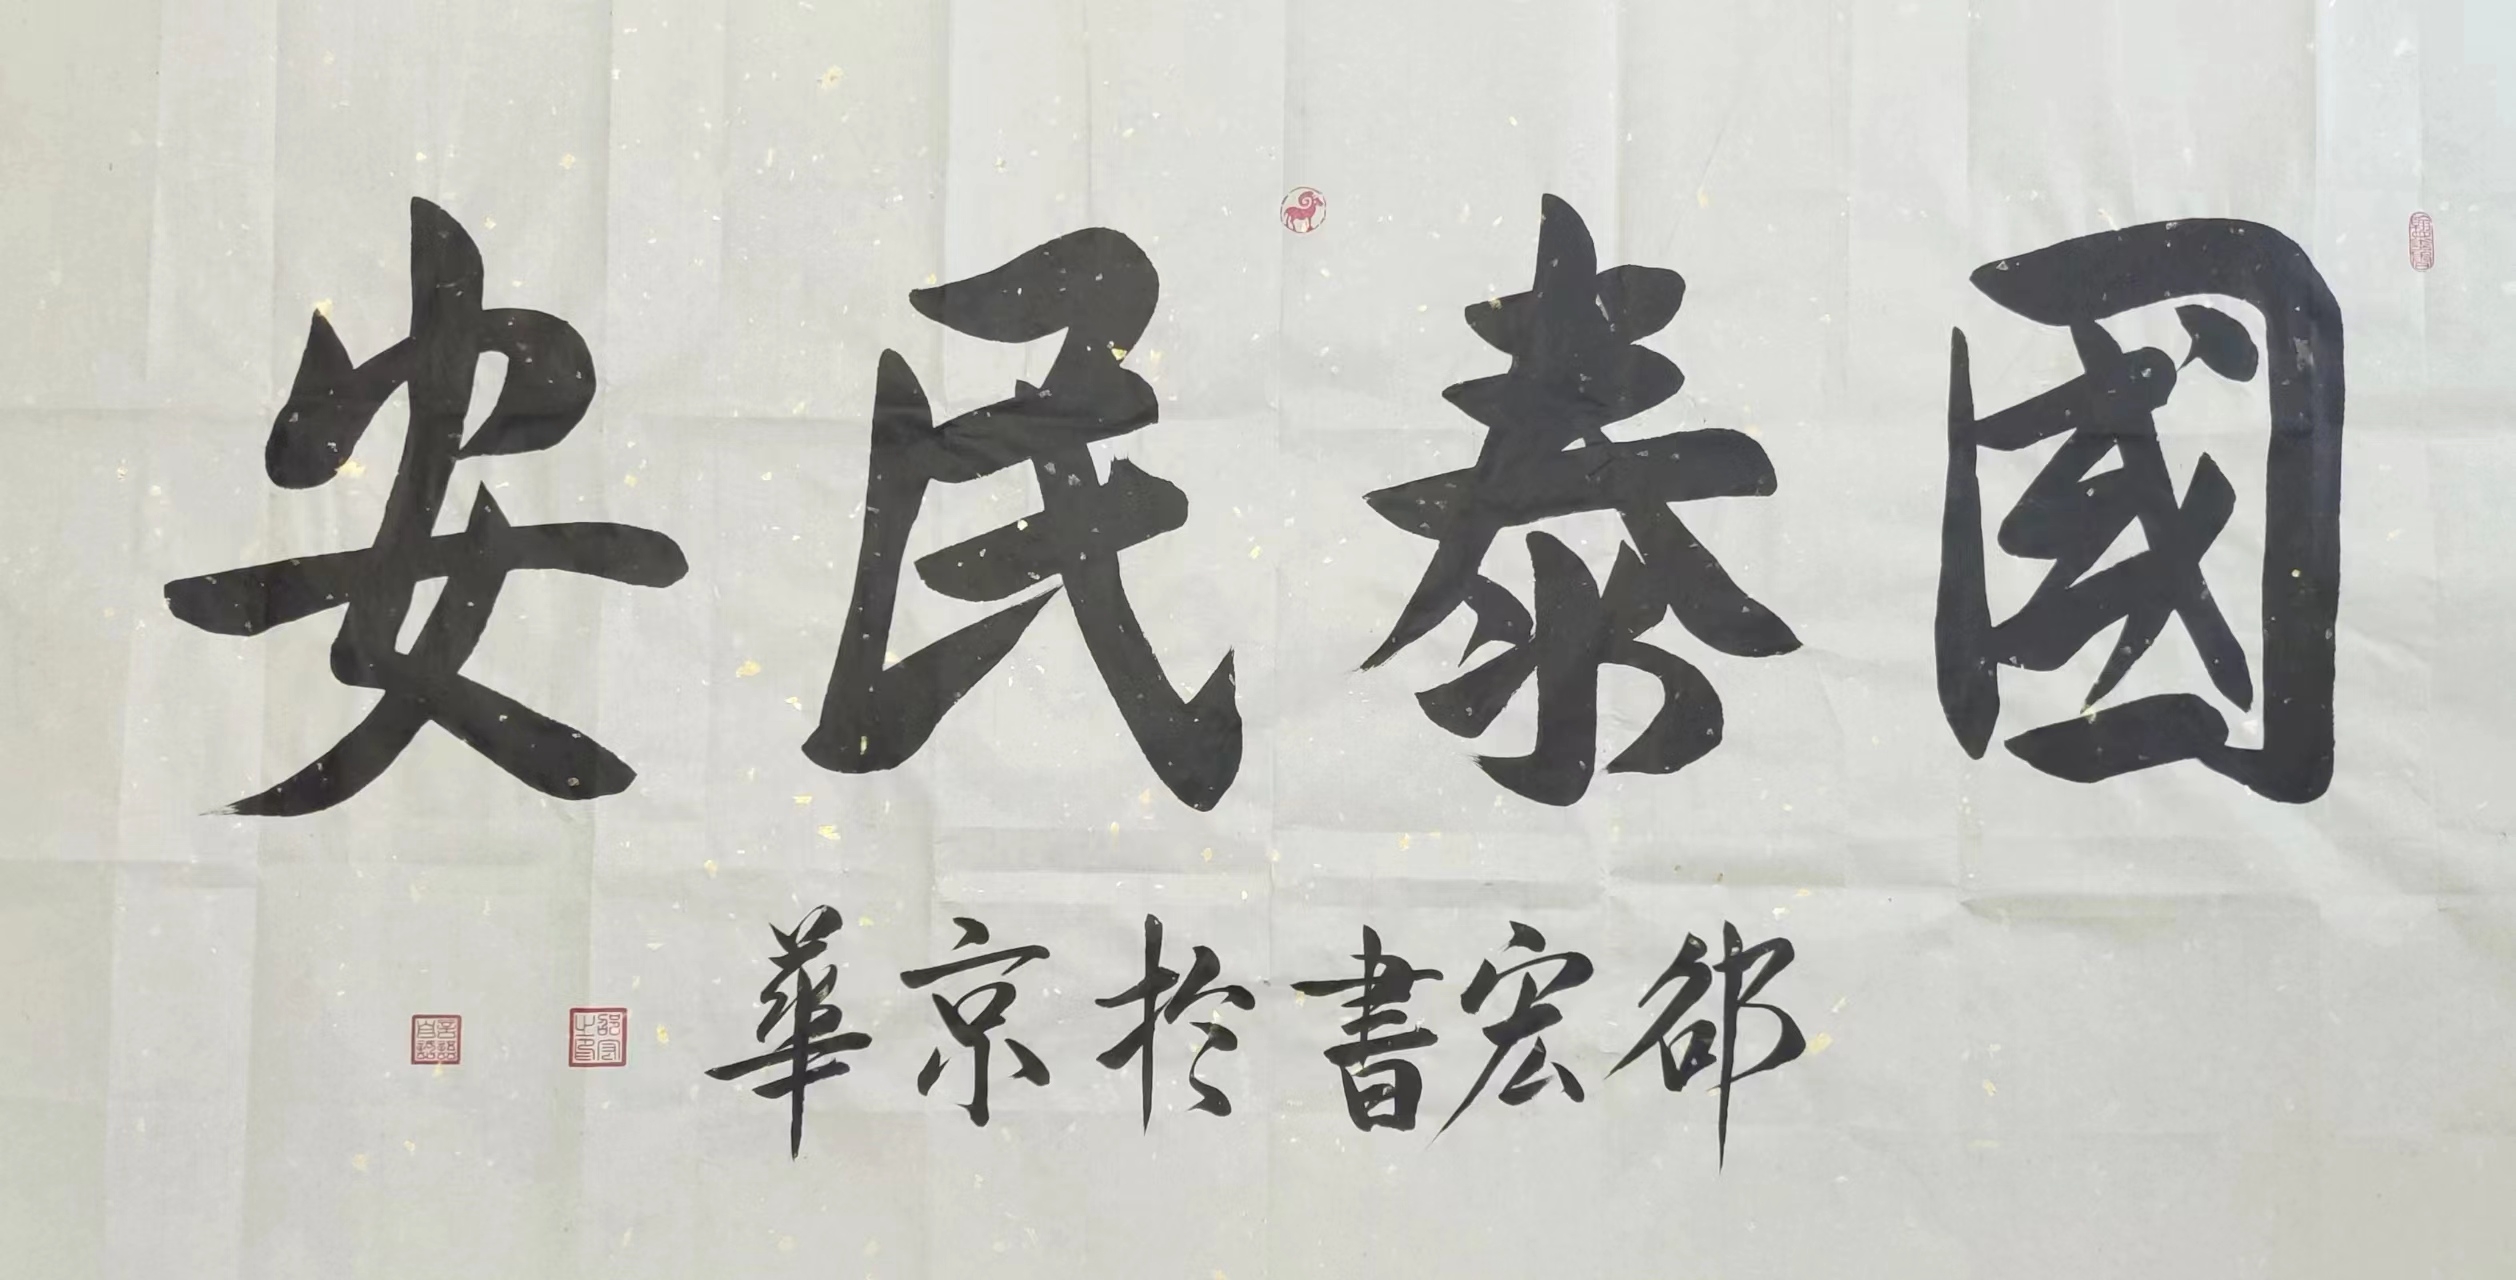 國泰民安
邵宏書於京華